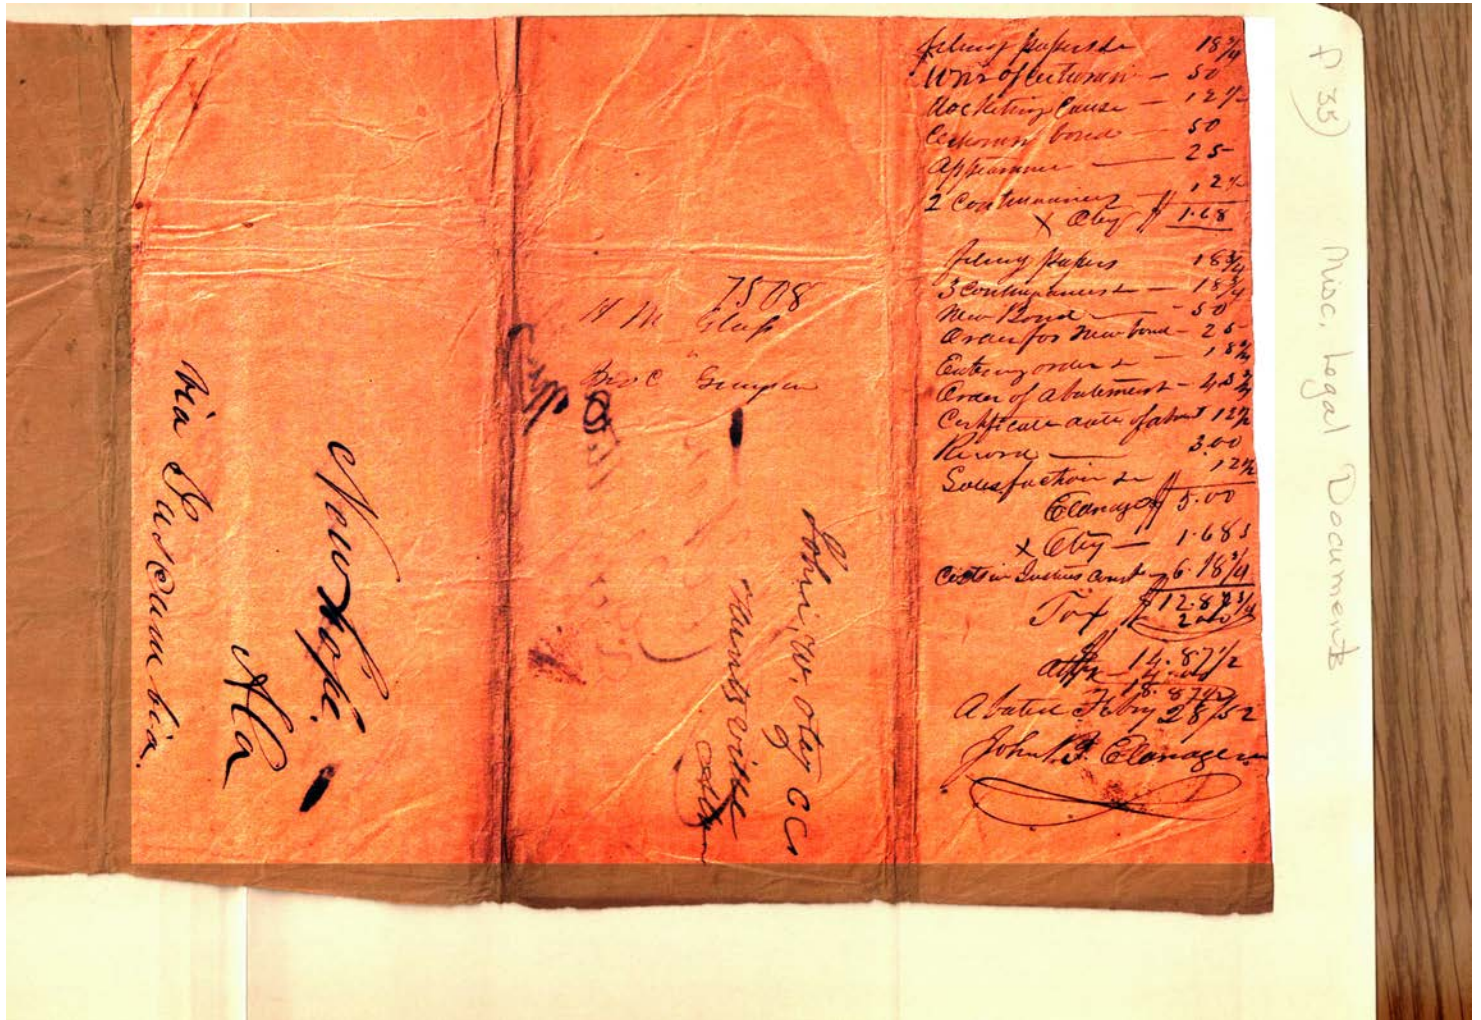 Filing papers &c 18 3/4
Writ of Certiorari — 50
Docketing Cause — 12 1/2
Certiorari bond — 50
Appearance — 25
2 Continuances 12 1/2
x Otey $ 1.68
Filing papers 18 3/4
3 Continuances &c — 18 3/4
New Bond — 50
Order for New bond — 25
Entering order &c — 18 3/4
Order of Abatement — 43 3/4
Certificate 12 1/2
Record — 3.00
Satisfaction &c 12 1/2
$ 5.00
x Otey — 1.68
Costs in Justices Court — 6.18 3/4
Tax 2.00
14.87 1/2
18.87 1/2
Abated Feby 28/52
John
7508
H M
John, W. Otey CC
Huntsville
Ala
New Hope.
Ala
Via Tuscumbia.
P 35) Misc. Legal Documents